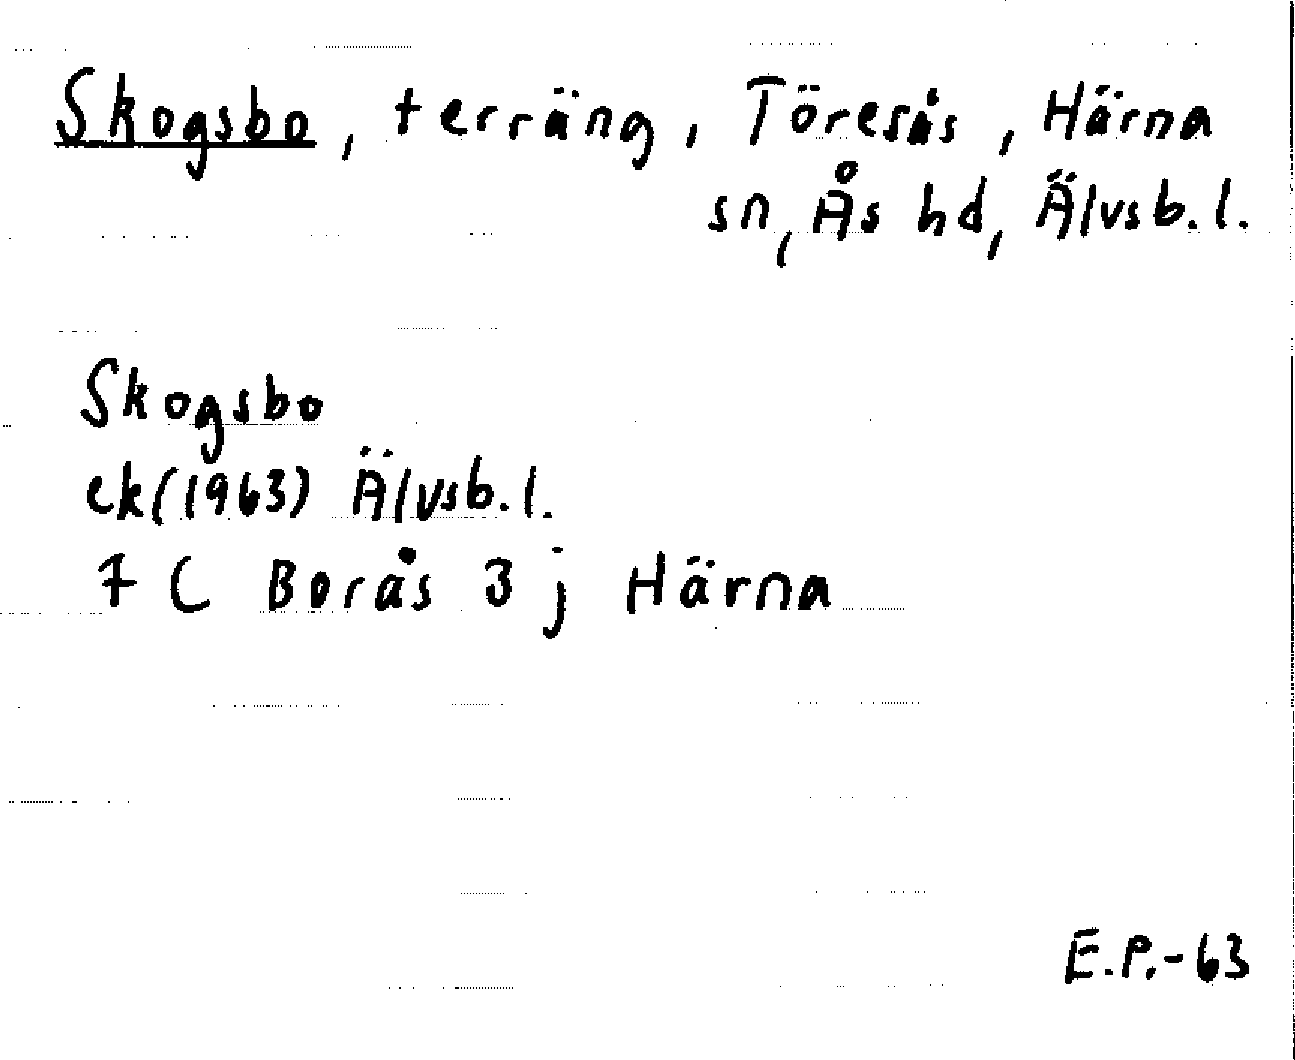 Skogsbo, terräng, Töresås, Härna
sn, Ås hd, Älvsb. l.
Skogsbo
ek(1963) Älvsb. l.
7 C Borås 3 j Härna
E.P.-63